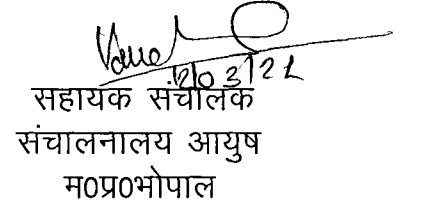 सहायक संचालक
संचालनालय आयुष
म0प्र0भोपाल